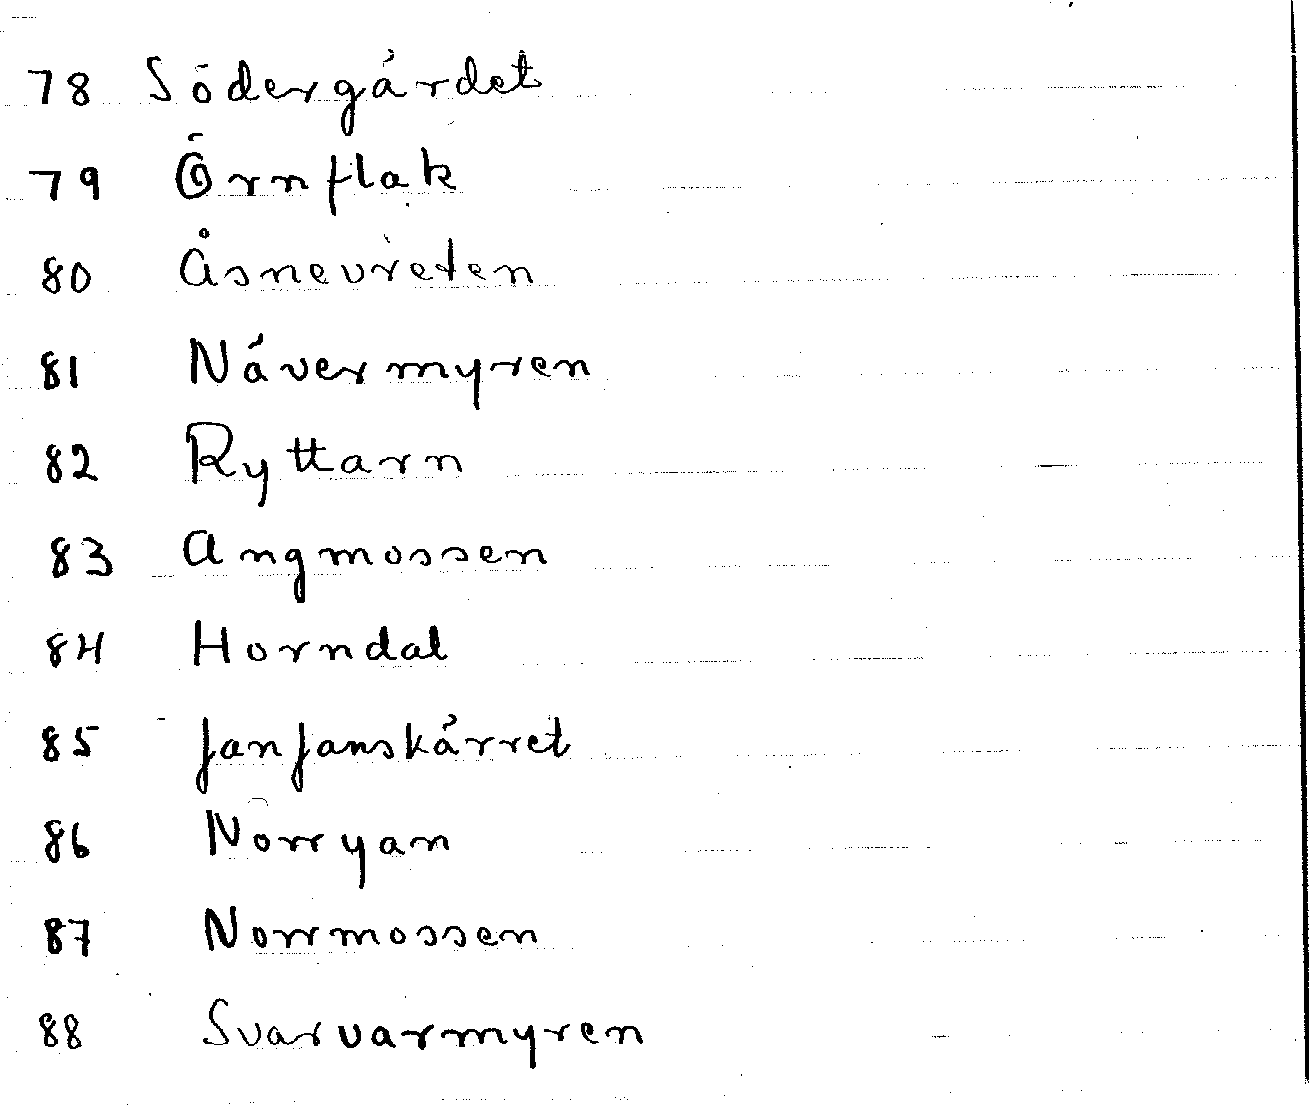 78 Södergårdet
79 Örnflak
80 Åsnevreten
81 Nävermyren
82 Ryttarn
83 Angmossen
84 Horndal
85 Jan Janskärret
86 Norryan
87 Norrmossen
88 Svarvarmyren